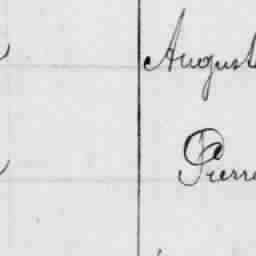 August
Pierre